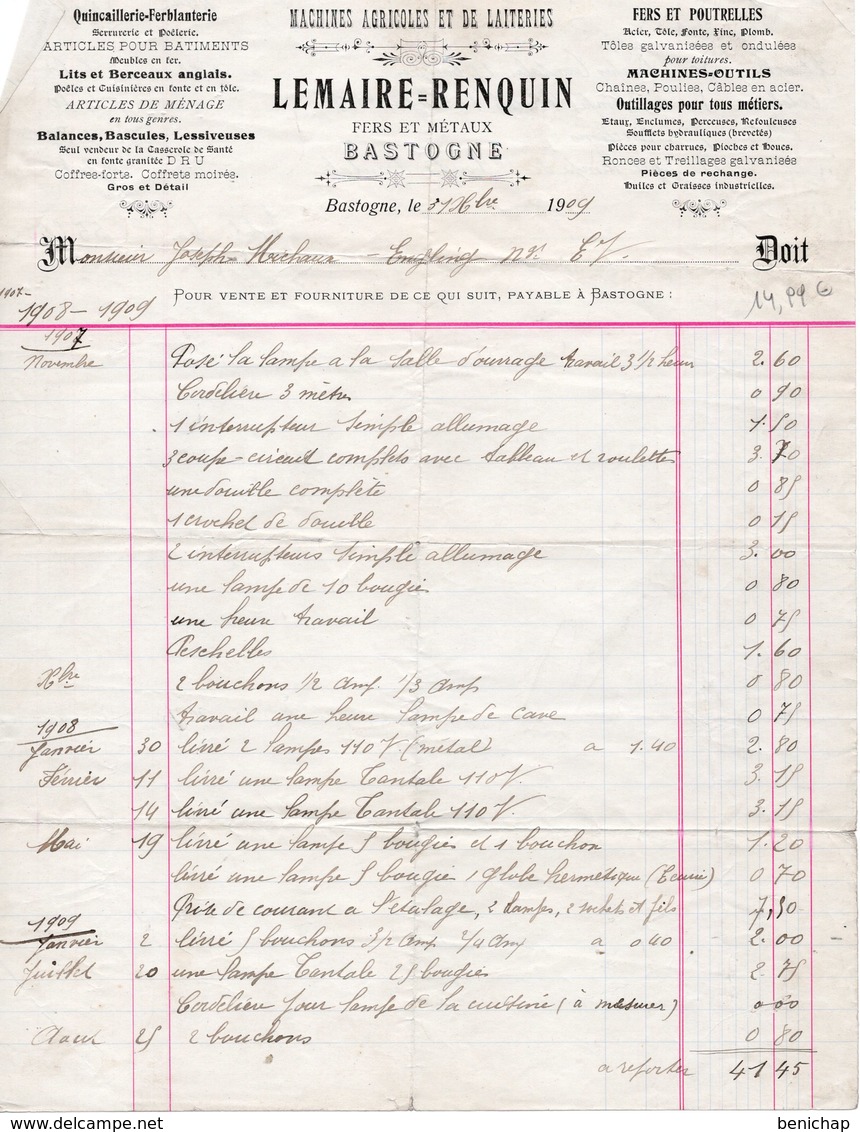 Quincaillerie-Ferblanterie
Serrurerie et Poêlerie.
ARTICLES POUR BATIMENTS
Meubles en fer.
Lits et Berceaux anglais.
Poêles et Cuisinières en fonte et en tôle.
ARTICLES DE MÉNAGE
en tous genres.
Balances, Bascules, Lessiveuses
Seul vendeur de la Casserole de Santé
en fonte granitée DRU
Coffres-forts. Coffrets moirés.
Gros et Détail
MACHINES AGRICOLES ET DE LAITERIES
LEMAIRE=RENQUIN
FERS ET MÉTAUX
BASTOGNE
FERS ET POUTRELLES
Acier, Tôle, Fonte, Zinc, Plomb.
Tôles galvanisées et ondulées
pour toitures.
MACHINES=OUTILS
Chaînes, Poulies, Câbles en acier.
Outillages pour tous métiers.
Etaux, Enclumes, Perceuses, Refouleuses
Soufflets hydrauliques (brevetés)
Pièces pour charrues, Pioches et Houes.
Ronces et Treillages galvanisés
Pièces de rechange.
Huiles et Graisses industrielles.
Bastogne, le 31 Xbre 1909
Monsieur Joseph Michaux - Engling Ngt E/V. Doit
1907-
1908-1909
POUR VENTE ET FOURNITURE DE CE QUI SUIT, PAYABLE À BASTOGNE :
14,99 €
1907
Novembre Posé la lampe a la salle d'ouvrage travail 3 1/2 heur 2.60
Cordelière 3 mètres 0 90
1 interrupteur simple allumage 1.50
3 coupe-circuit complets avec tableau et roulettes 3.70
une douille complète 0 85
1 crochet de douille 0 15
2 interrupteurs simple allumage 3.00
une lampe de 10 bougies 0 80
une heure travail 0 75
Peschelles 1.60
Xbre 2 bouchons 1/2 Amp. 1/3 Amp 0 80
travail une heure lampe de cave 0 75
1908
Janvier 30 livré 2 lampes 110 V (métal) a 1.40 2.80
Février 11 livré une lampe Tantale 110 V. 3.15
14 livré une lampe Tantale 110 V. 3.15
Mai 19 livré une lampe 5 bougies et 1 bouchon 1.20
livré une lampe 5 bougie 1 globe hermetique 0 70
Prise de courant a l'étalage, 2 lampes, 2 sockets et fils 7,50
1909
Janvier 2 livré 5 bouchons 3/2 Amp 2/4 Amp a 0 40 2.00 -
Juillet 20 une lampe Tantale 25 bougies 2.75
Cordelière pour lampe de la cuisine (à mesurer) 0 00
Aout 25 2 bouchons 0 80
a reporter 41 45
benichap